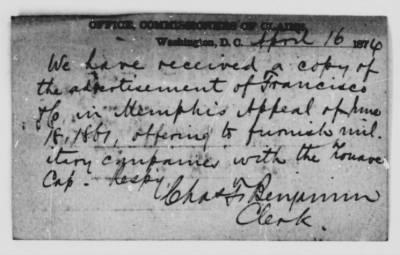 OFFICE, COMMISSIONERS OF CLAIMS,
Washington, D. C. April 16 1874
We have received a copy of
the advertisement of Francisco
& Co. in Memphis Appeal of June
18, 1861, offering to furnish mil-
itary companies with the Zouave
Cap. Respy
Chas F. Benjamin
Clerk.